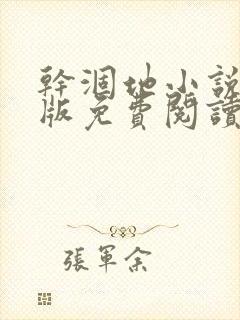 幹涸地小說
版免費閱讀
張軍余